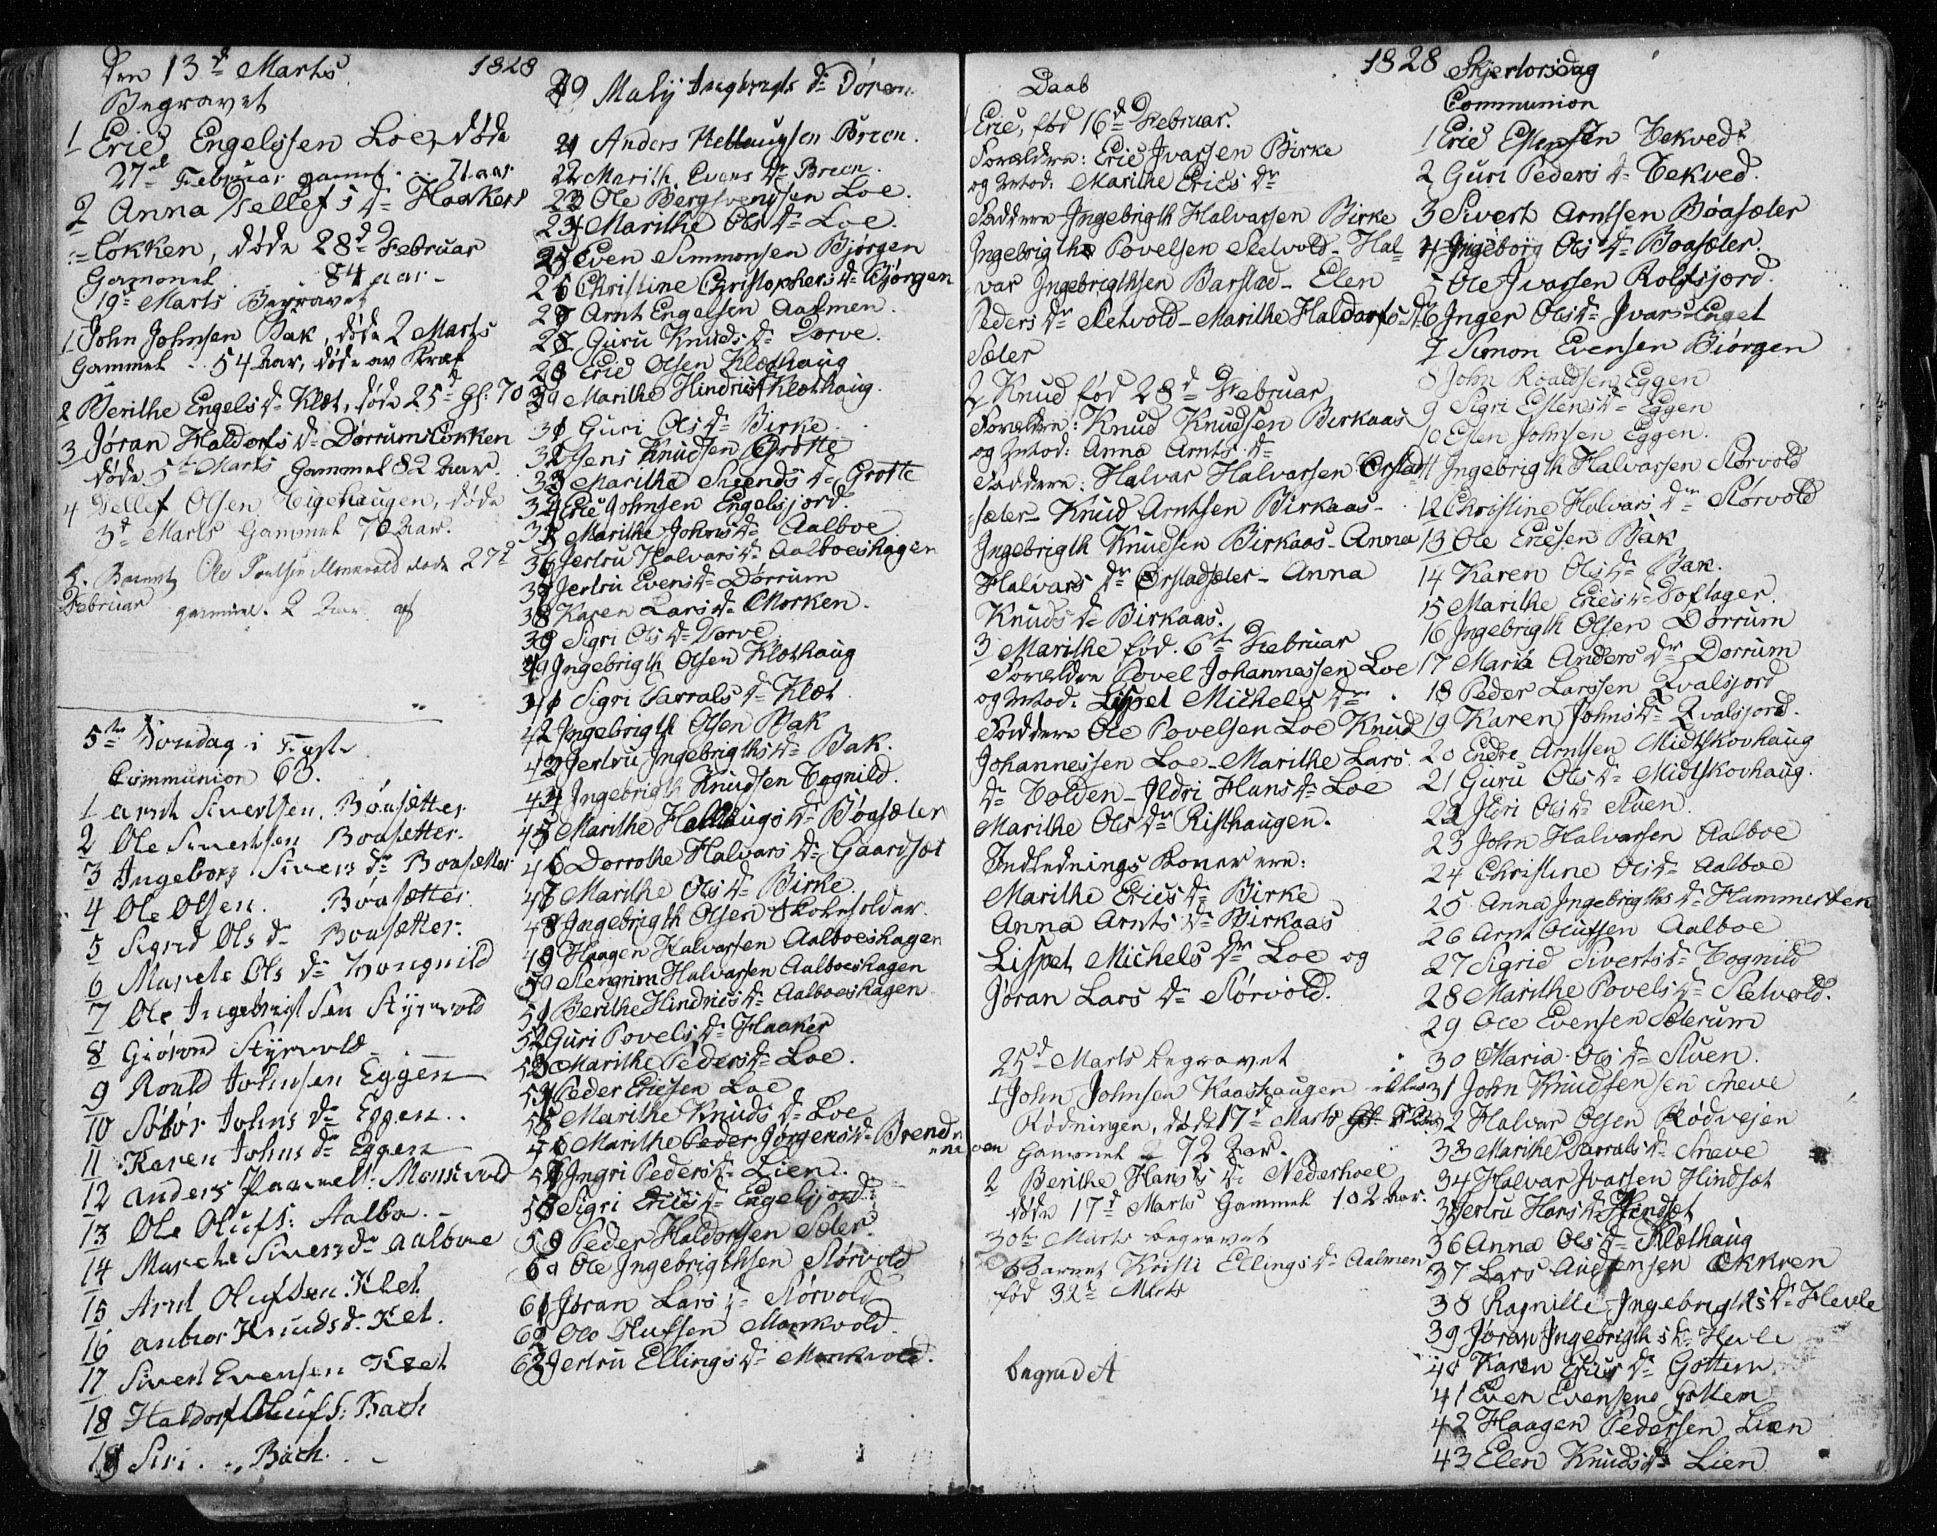 Den 13d Marts 1828
Begravet
1 Eric Engelssen Loe, døde
27d Februar gamel. 71 aar
2 Anna Tellefs Dr Haaker
=løkken, døde 28d Februar
Gammel 84 aar -
19de Marts Begravet
1 John Johnsen Bak, døde 2 Marts
Gammel - 54 Aar, døde av Kræf
2 Berithe Engels Dr Klæt, døde 25d Gl: 70
3 Jøran Haldorfs Dr Dørrumsløkken
døde 5te Marts Gammel 82 Aar.
4 Tellef Olsen Teigehaugen, døde
3d Marts Gammel 70 Aar.
5. Barnet Ole Poulsen døde 27d
Februar gammel. 2 Aar
5te Søndag i Faste
Communion 63.
1 Arnt Sivertsen, Bøasætter
2 Ole Sivertsen Boasetter.
3 Ingeborg Sivers Dr Boasætter
4 Ole Olsen. Boasætter.
5 Sigrid Ols Dr Boasætter.
6 Marete Ols Dr Hougnild
7 Ole Ingebrigtsen Styrvold
8 Giörond Styrvold
9 Roald Johnsen Eggen
10 Sølør Johns Dr Eggen..
11 Karen Johns Dr Eggen
12 Anders Paavels: Monsvold
13 Ole Olufs: Aalbo. -
14 Marete Sivers Dr Aalboe
15 Arnt Olufsen Klet
16 Anbior Knuds Dr Klet.
17 Sivert Evensen Klet
18 Haldorf Olufs: Bach
19 Siri . -,, Bach. -
20 Maly Ingbrigts Dr Døren
21 Anders Hellaugsen Breen.
22 Marith. Evens Dr Breen.
23 Ole Bergsvendsen Loe.
24 Marithe Ols Dr Loe.
25 Even Simmonsen Bjørgen
26 Christine Christophers Dr Bjørgen
27 Arnt Engelsen Aalmen.
28 Guru Knuds Dr Torve.
29 Eric Olsen Klæthaug
30 Marithe Hindrics Dr Klæthaug.
31 Guri Ols Dr Birke.
32 Jens Knudsen Grøtte
33 Marithe Svends Dr Grøtte
34 Eric Johnsen Engelsjord.
35 Marithe Johns Dr Aalboe
36 Jertru Halvars Dr Aalboeshagen
37 Jertru Evens Dr Dørrum
38 Karen Lars Dr Morken.
39 Sigri Ols Dr Torve
40 Ingebrigth Olsen Klæthaug
41 Sigri Tarrals Dr Klæt
42 Ingebrigth Olsen Bak
43 Jertru Ingebrigths Dr Bak.
44 Ingebrigth Knudsen Tognild.
45 Marithe Hellaugs Dr Bøasæler
46 Dorrothe Halvars Dr Gaardsæt
47 Marithe Ols Dr Birke.
48 Ingebrigth Olsen Skoleholder.
49 Haagen Halvarsen Aalboeshagen
50 Stengrim Halvarsen Aalboeshagen
51 Berithe Hindrics Dr Aalboeshagen
52 Guri Povels Dr Haaker
53 Marithe Peders Dr Loe.
54 Peder Ericsen Loe
55 Marithe Knuds Dr Loe
56 Marithe Peder Jørgens Dr Brend
=moen
57 Ingri Peders Dr Lien.
58 Sigri Erics Dr Engelsjord.
59 Peder Haldorsen Sæler.
60 Ole Ingebrigthsen Størvold
61 Jøran Lars Dr Størvold
62 Ole Olufsen Monkvold.
63 Jertru Ellings Dr Monkvold.
1828
Daab
1 Eric, fød 16d Februar.
Forældre: Eric Ivarsen Birke
og Mod: Marithe Erics Dr
Faddere Ingebrigth Halvarsen Birke
Ingebrigth Povelsen Stetvold - Hal=
var Ingebrigthsen Barstad - Elen
Peders Dr Stetvold - Marithe Haldorfs Dr
Sæler
2 Knud fød 28d Februar
Forældre: Knud Knudsen Birkaas
og Mod: Anna Arnts Dr
Faddere: Halvar Halvarsen Ørstad
=sæler - Knud Arntsen Birkaas -
Ingebrigth Knudsen Birkaas - Anna
Halvars Dr Ørstadsæler - Anna
Knuds Dr Birkaas.
3 Marithe fød. 6te Februar
Forældre Povel Johannessen Loe
og Mod: Lispet Michels Dr
Faddere Ole Povelsen Loe Knud
Johannessen Loe - Marithe Lars
Dr Tolden - Ildri Hans Dr Loe
Marithe Ols Dr Risthaugen.
Indlednings Koner ere:
Marithe Erics Dr Birke
Anna Arnts Dr Birkaas
Lispet Michels Dr Loe og
Jøran Lars Dr Størvold.
25d Marts begravet
1 John Johnsen Kaashaugen eller
Rødningen, døde 17d Marts
Gammel 72 Aar.
2 Berithe Hans Dr Nederhoel
døde 17d Marts Gammel 102 Aar.
30te Marts begravet
Barnet Kristi Ellings Dr Aalmen
fød 32te Marts
begravet
Skjertorsdag
Communion
1 Eric Estensen Tekved
2 Guri Peders Dr Tekved.
3 Sivert Arntsen Bøasæler
4 Ingeborg Ols Dr Boasæler.
5 Ole Ivarsen Rolfsjord.
6 Inger Ols Dr Ivars=Enget
7 Simon Evensen Biørgen
8 John Roaldsen Eggen
9 Sigri Estens Dr Eggen
10 Esten Johnsen Eggen.
11 Ingebrigth Halvarsen Størvold
12 Christine Halvars Dr Størvold
13 Ole Ericsen Bak
14 Karen Ols Dr Bak.
15 Marithe Erics Dr Toflager.
16 Ingebrigth Olsen Dørrum
17 Maria Anders Dr Dørrum
18 Peder Larssen Qvalsjord
19 Karen Johns Dr Qvalsjord.
20 Endre Arntsen Midtskovhaug
21 Guru Ols Dr Midtskovhaug.
22 Ildri Ols Dr Stuen.
23 John Halvarsen Aalboe
24 Christine Ols Dr Aalboe
25 Anna Ingebrigths Dr Hammerten
26 Arnt Olufsen Aalboe
27 Sigrid Siverts Dr Tognild
28 Marithe Povels Dr Stetvold.
29 Ole Evensen Sælerum
30 Maria Ols Dr Stuen.
31 John Knudsen Sneve
32 Halvar Olsen Rødvejen
33 Marithe Tarrals Dr Sneve
34 Halvar Ivarsen Hindsæt
35 Jertru Hans Dr Hindsæt
36 Anna Ols Dr Klæthaug
37 Lars Audensen Ekkren
38 Ragnille Ingebrigths Dr Hevle
39 Jøran Ingebrigths Dr Hevle
40 Karen Erics Dr Gottem.
41 Even Evensen Gottem
42 Haagen Pederssen Lien
43 Elen Knuds Dr Lien